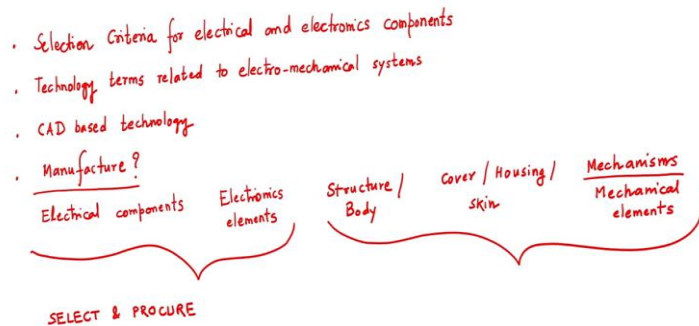 . Selection Criteria for electrical and electronics components
. Technology terms related to electro-mechanical systems
. CAD based technology
. Manufacture?
Electrical components
Electronics
elements
Structure/
Body
Cover / Housing /
skin
Mechanisms
Mechanical
elements
SELECT & PROCURE